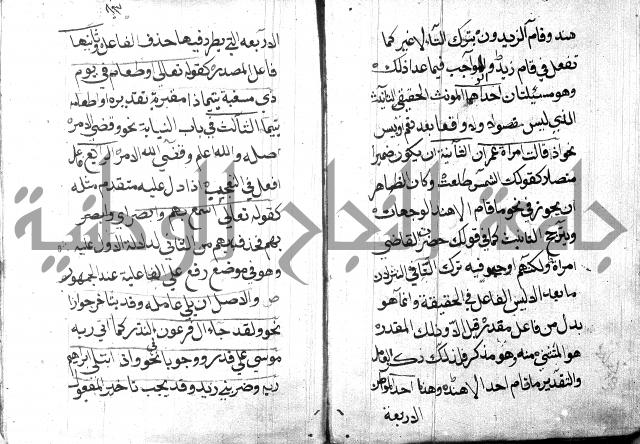 هند وقام الزيدون بترك التاء لا غير كما
تفعل في قام زيد والواجب فيما عدا ذلك
وهو مسئلتان احدهما المونث الحقيقي التانيث
الذي ليس مفصولا ولا واقعا بعد نعم وبيس
نحو اذ قالت امراة عمران الثانية ان يكون ضميرا
متصلا كقولك الشمس طلعت وكان الظاهر
ان يجوز في نحو ما قام الا هند الوجهان
ويترجح التانيث كما في قولك حضر القاضي
امراة ولكنهم اوجبوا فيه ترك التا في النثر لان
ما بعد الا ليس الفاعل في الحقيقة وانما هو
بدل من فاعل مقدر قبل الا وذلك المقدر
هو المستثنى منه وهو مذكر فلذلك ذكر العامل
والتقدير ما قام احد الا هند وهذا احد المواطن
الاربعة
الاربعه التي يطرد فيها حذف الفاعل وثانيها
فاعل المصدر كقوله تعالى او اطعام في يوم
ذي مسغبة يتيما ذا مقربة تقديره او اطعامه
يتيما الثالث في باب النيابة نحو وقضي الامر
اصله والله اعلم وقضى الله الامر الرابع فاعل
افعل في التعجب اذا دل عليه متقدم مثله
كقوله تعالى اسمع بهم وابصر اي وابصر
بهم فحذف بهم من الثاني لدلالة الاول عليه
وهو في موضع رفع على الفاعلية عند الجمهور
ص والاصل ان يلي عامله وقد يتاخر جوازا
نحو ولقد جاء ال فرعون النذر كما اتى ربه
موسى على قدر ووجوبا في نحو واذ ابتلى ابراهيم
ربه وضربني زيد وقد يجب تاخير المفعول
جامعة النجاح الوطنية